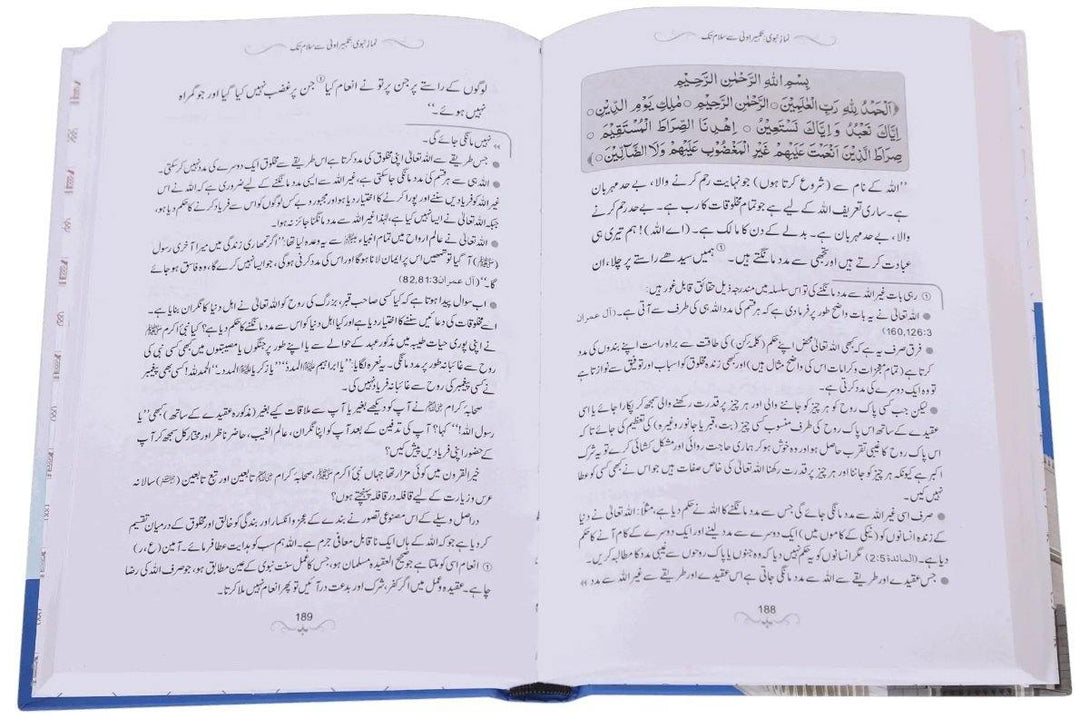 نمازِ نبوی: تکبیر اولیٰ سے سلام تک
بِسْمِ اللهِ الرَّحْمٰنِ الرَّحِيْمِ
﴿ اَلْحَمْدُ لِلّٰهِ رَبِّ الْعٰلَمِيْنَ ○ الرَّحْمٰنِ الرَّحِيْمِ ○ مٰلِكِ يَوْمِ الدِّيْنِ ○
اِيَّاكَ نَعْبُدُ وَ اِيَّاكَ نَسْتَعِيْنُ ○ اِهْدِنَا الصِّرَاطَ الْمُسْتَقِيْمَ ○
صِرَاطَ الَّذِيْنَ اَنْعَمْتَ عَلَيْهِمْ غَيْرِ الْمَغْضُوْبِ عَلَيْهِمْ وَلَا الضَّآلِّيْنَ ○ ﴾
’’اللہ کے نام سے (شروع کرتا ہوں) جو نہایت رحم کرنے والا، بے حد مہربان
ہے۔ ساری تعریف اللہ کے لیے ہے جو تمام مخلوقات کا رب ہے۔ بے حد رحم کرنے
والا، بے حد مہربان ہے۔ بدلے کے دن کا مالک ہے۔ (اے اللہ)! ہم تیری ہی
عبادت کرتے ہیں اور تجھی سے مدد مانگتے ہیں۔ ① ہمیں سیدھے راستے پر چلا، ان
① رہی بات غیر اللہ سے مدد مانگنے کی تو اس سلسلہ میں مندرجہ ذیل حقائق قابل غور ہیں:
● اللہ تعالیٰ نے یہ بات واضح طور پر فرما دی ہے کہ ہر قسم کی مدد اللہ ہی کی طرف سے آتی ہے۔ (آل عمران
160,126:3)
● فرق صرف یہ ہے کہ کبھی اللہ تعالیٰ محض اپنے حکم (کلمۂ کن) کی طاقت سے براہ راست اپنے بندوں کی مدد
کرتا ہے (تمام معجزات و کرامات اس کی واضح مثال ہیں) اور کبھی زندہ مخلوق کو اسباب اور توفیق سے نوازتا ہے
تو وہ ایک دوسرے کی مدد کرتی ہے۔
● لیکن جب کسی پاک روح کو ہر چیز کو جاننے والی اور ہر چیز پر قدرت رکھنے والی سمجھ کر پکارا جائے یا اسی
عقیدے کے ساتھ اس پاک روح کی طرف منسوب کسی چیز (بت، قبر یا جانور وغیرہ) کی تعظیم کی جائے تاکہ
اس پاک روح کا غیبی تقرب حاصل ہو اور وہ خوش ہو کر ہماری حاجت روائی اور مشکل کشائی کرے تو یہ شرک
اکبر ہے کیونکہ ہر چیز کو جاننا اور ہر چیز پر قدرت رکھنا اللہ تعالیٰ کی خاص صفات ہیں جو اس نے بھی کسی کو عطا
نہیں کیں۔
● صرف اسی غیر اللہ سے مدد مانگی جائے گی جس سے مدد مانگنے کا اللہ نے حکم دیا ہے، مثلاً: اللہ تعالیٰ نے دنیا
کے زندہ انسانوں کو (نیکی کے کاموں میں) ایک دوسرے سے مدد لینے اور ایک دوسرے کے کام آنے کا حکم
دیا ہے۔ (المائدۃ 2:5) مگر انسانوں کو یہ حکم نہیں دیا کہ وہ جنوں یا پاک روحوں سے غیبی مدد کا مطالبہ کریں۔
● جس عقیدے اور طریقے سے اللہ سے مدد مانگی جاتی ہے اس عقیدے اور طریقے سے غیر اللہ سے مدد »
188
نمازِ نبوی: تکبیر اولیٰ سے سلام تک
لوگوں کے راستے پر جن پر تو نے انعام کیا ① جن پر غضب نہیں کیا گیا اور جو گمراہ
نہیں ہوئے۔‘‘
» نہیں مانگی جائے گی۔
● جس طریقے سے اللہ تعالیٰ اپنی مخلوق کی مدد کرتا ہے اس طریقے سے مخلوق ایک دوسرے کی مدد نہیں کر سکتی۔
● اللہ ہی سے ہر قسم کی مدد مانگی جا سکتی ہے، غیر اللہ سے ایسی مدد مانگنے کے لیے ضروری ہے کہ اللہ نے اس
غیر اللہ کو فریادیں سننے اور پورا کرنے کا اختیار دیا ہو اور مجبور و بے کس لوگوں کو اس سے فریاد کرنے کا حکم دیا ہو،
جبکہ اللہ تعالیٰ نے ایسا نہیں کیا ہے، لہٰذا غیر اللہ سے مدد مانگنا جائز نہ ہوا۔
● اللہ تعالیٰ نے عالم ارواح میں تمام انبیاء ﷺ سے یہ وعدہ لیا تھا: ’’اگر تمھاری زندگی میں میرا آخری رسول
(ﷺ) آ گیا تو تمھیں اس پر ایمان لانا ہوگا اور اس کی مدد کرنی ہوگی، جو ایسا نہیں کرے گا، وہ فاسق ہو جائے
گا۔‘‘ (آل عمران 82,81:3)
● اب سوال پیدا ہوتا ہے کہ کیا کسی صاحب قبر، بزرگ کی روح کو اللہ تعالیٰ نے اہل دنیا کا نگران بنایا ہے۔
اسے مخلوقات کی دعائیں سننے کا اختیار دیا ہے اور کیا اہل دنیا کو اس سے مدد مانگنے کا حکم دیا ہے؟ کیا نبی اکرم ﷺ
نے اپنی پوری حیات طیبہ میں مذکورہ عہد کے حوالے سے یا اپنے طور پر جنگوں یا مصیبتوں میں کبھی کسی نبی کی
روح سے غائبانہ طور پر مدد مانگی۔ یہ نعرہ لگایا: ’’یا ابراہیم المدد‘‘ ’’یا زکریا المدد‘‘۔ الحمدللہ! کسی بھی پیغمبر
نے کسی پیغمبر کی روح سے غائبانہ فریاد نہیں کی۔
صحابہ کرام نے آپ کو دیکھے بغیر یا آپ سے ملاقات کیے بغیر (مذکورہ عقیدے کے ساتھ) کبھی ’’یا
رسول اللہ!‘‘ کہا؟ آپ کی تدفین کے بعد آپ کو اپنا نگران، عالم الغیب، حاضر ناظر اور مختار کل سمجھ کر آپ
کے حضور اپنی فریادیں پیش کیں؟
خیر القرون میں کوئی مزار تھا جہاں نبی اکرم ﷺ، صحابہ کرام تابعین اور تبع تابعین سالانہ
عرس و زیارت کے لیے قافلہ در قافلہ پہنچتے ہوں؟
دراصل وسیلے کے اس مصنوعی تصور نے بندے کے عجز و انکسار اور بندگی کو خالق اور مخلوق کے درمیان تقسیم
کر دیا ہے جو کہ اللہ کے ہاں ایک ناقابل معافی جرم ہے۔ اللہ ہم سب کو ہدایت عطا فرمائے۔ آمین (ع، ر)
① انعام اسی کو ملتا ہے جو صحیح العقیدہ مسلمان ہو، جس کا عمل سنت نبوی کے عین مطابق ہو، جو صرف اللہ کی رضا
چاہے۔ عقیدہ و عمل میں اگر کفر، شرک اور بدعت در آئیں تو پھر انعام نہیں ملا کرتا۔
189